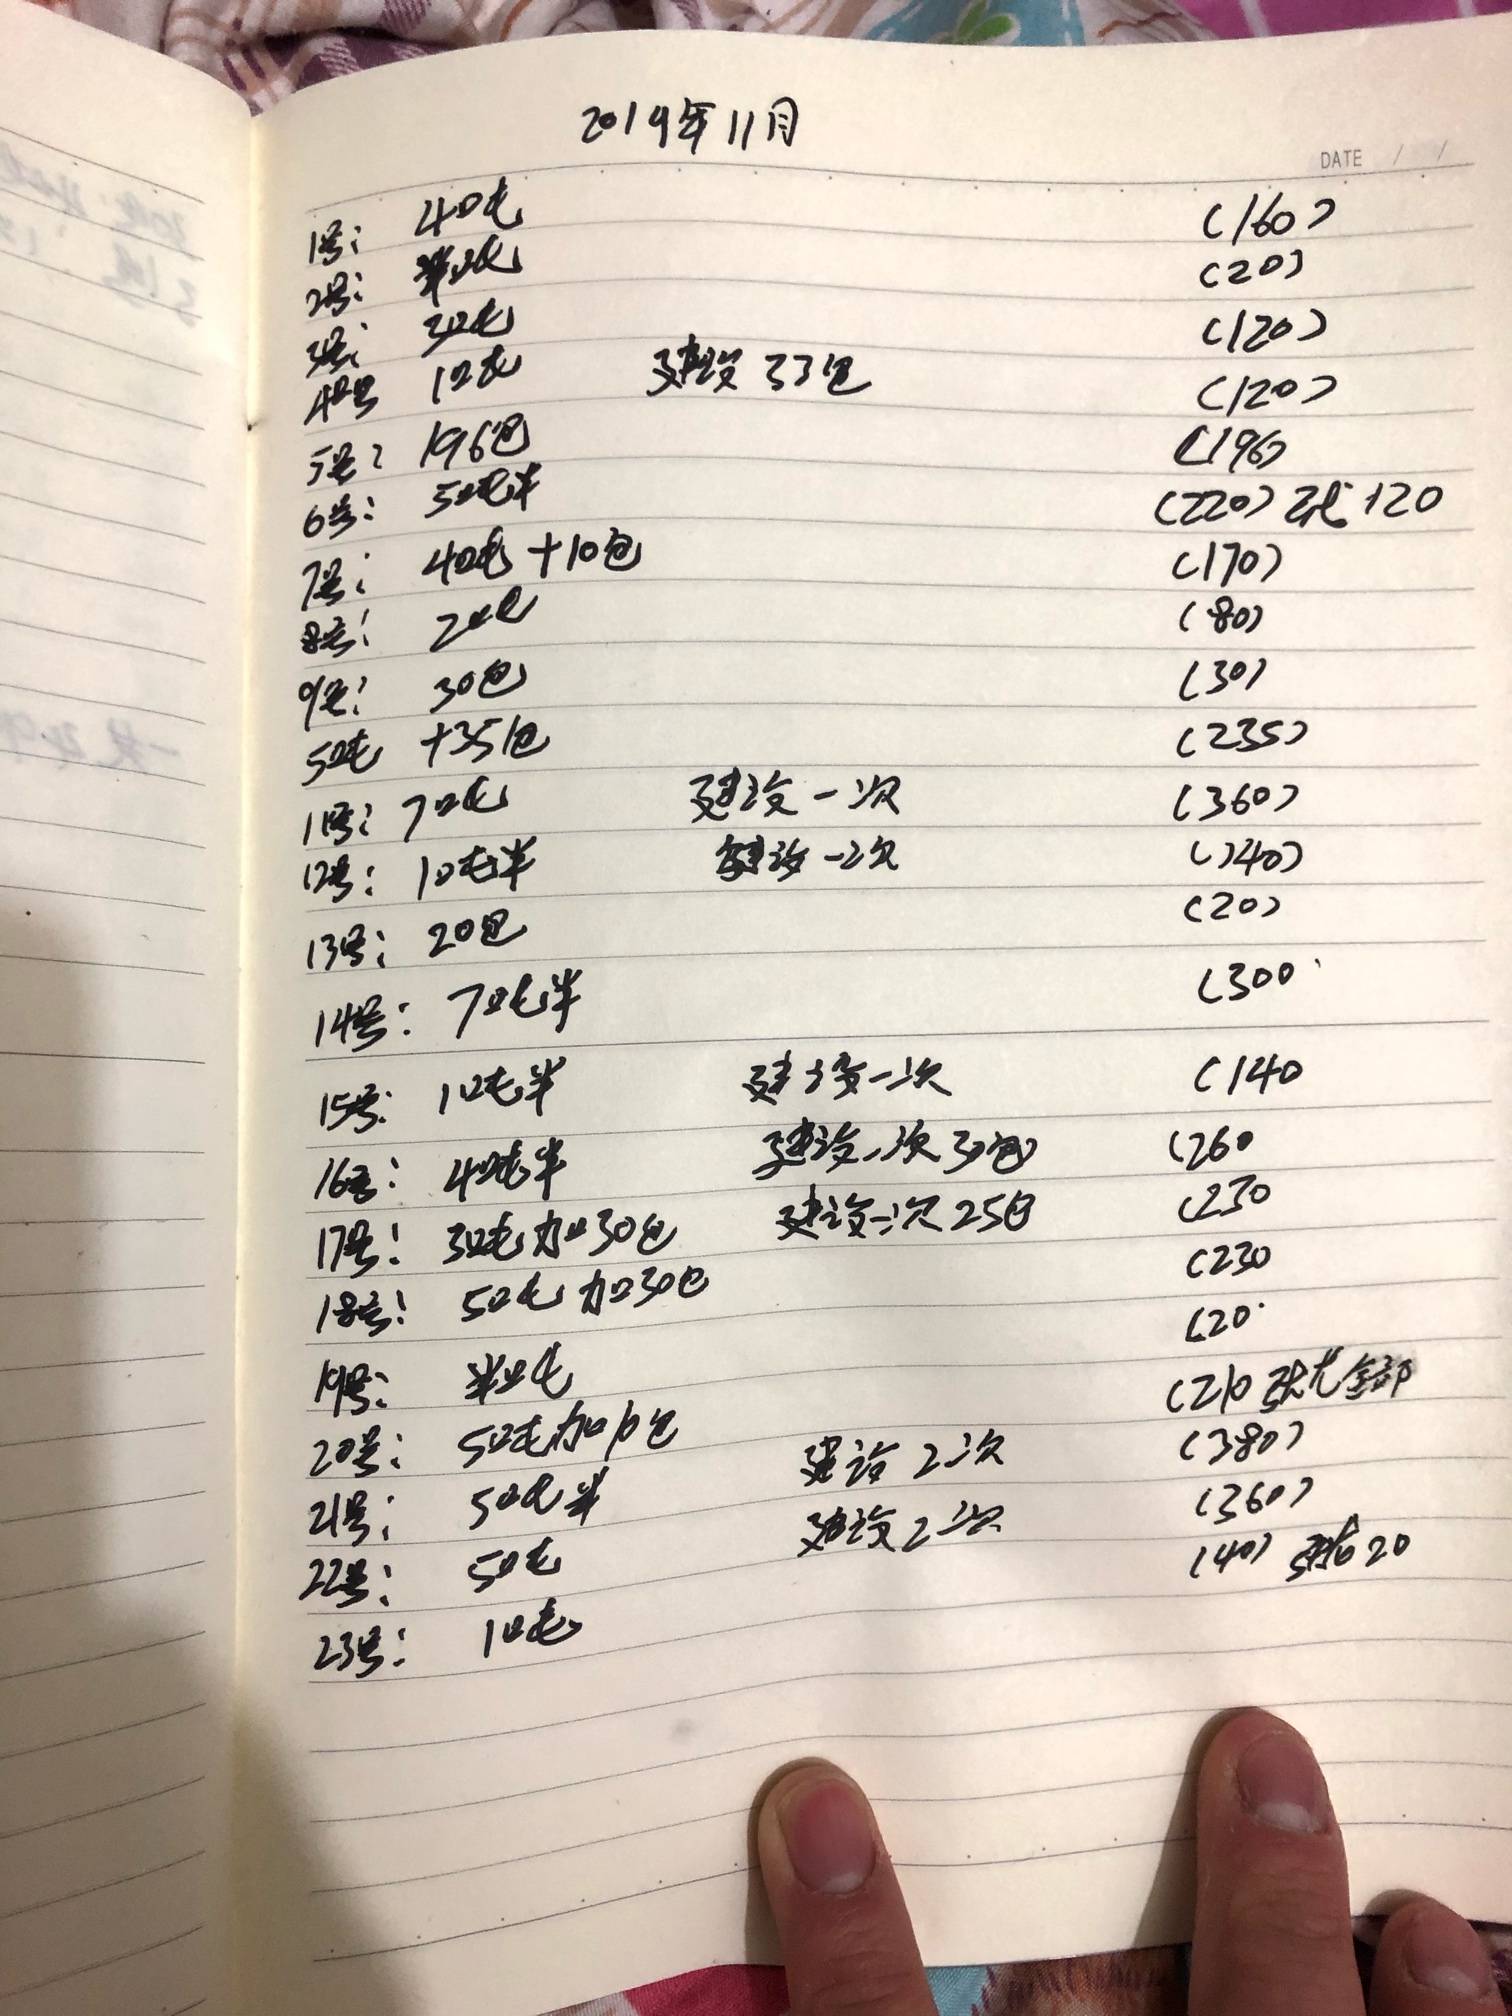 2019年11月
DATE / /
1号: 4吨 (160)
2号: 半吨 (20)
3号: 3吨 (120)
4号 1吨 建设33包 (120)
5号: 196包 (196)
6号: 5吨半 (220) 120
7号: 4吨+10包 (170)
8号: 2吨 (80)
9号: 30包 (30)
5吨 +35包 (235)
11号: 7吨 建设一次 (360)
12号: 1吨半 建设一次 (140)
13号: 20包 (20)
14号: 7吨半 (300
15号: 1吨半 建设一次 (140
16号: 4吨半 建设一次30包 (260
17号: 3吨加30包 建设一次25包 (230
18号: 5吨加30包 (230
19号: 半吨 (20
20号: 5吨加10包 (210 全部
21号: 5吨半 建设2次 (380)
22号: 5吨 建设2次 (360)
23号: 1吨 (40) 20